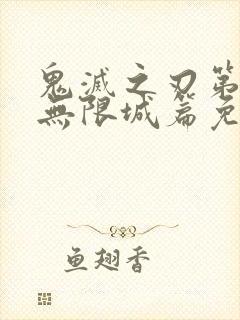 鬼滅之刃第
無限城篇免
鱼翅香